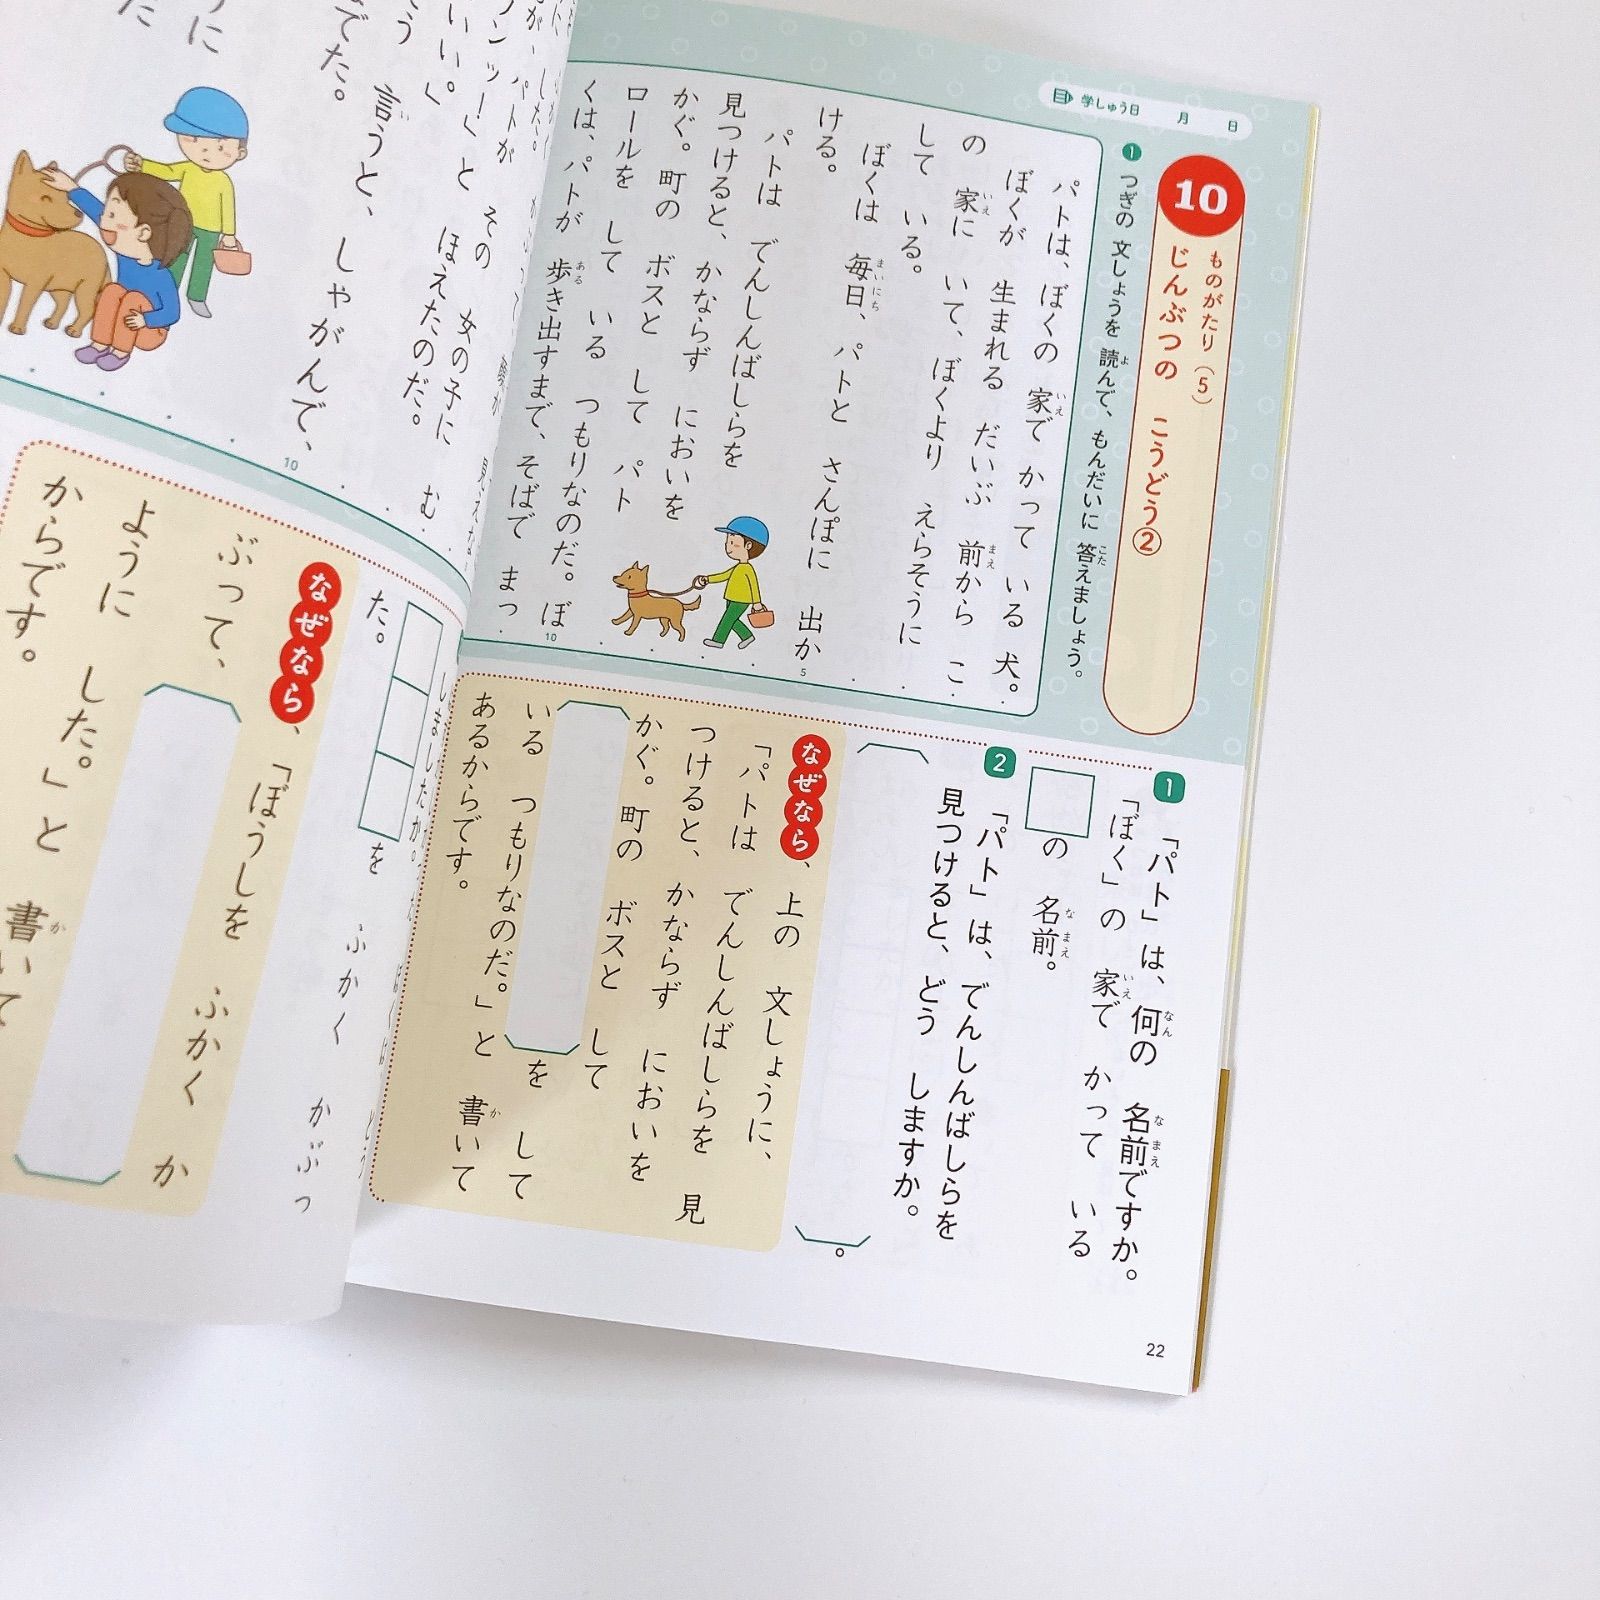 学しゅう日 月 日
10
ものがたり(5)
じんぶつの こうどう②
1 つぎの 文しょうを 読んで、もんだいに 答えましょう。
パトは、ぼくの 家で かって いる 犬。
ぼくが 生まれる だいぶ 前から こ
の 家に いて、ぼくより えらそうに
して いる。
ぼくは 毎日、パトと さんぽに 出か
ける。
パトは でんしんばしらを
見つけると、かならず においを
かぐ。町の ボスと して パト
ロールを して いる つもりなのだ。ぼ
くは、パトが 歩き出すまで、そばで まっ
5
10
1 「パト」は、何の 名前ですか。
「ぼく」の 家で かって いる
の 名前。
2 「パト」は、でんしんばしらを
見つけると、どう しますか。
。
なぜなら、上の 文しょうに、
「パトは でんしんばしらを 見
つけると、かならず においを
かぐ。町の ボスと して
を して
いる つもりなのだ。」と 書いて
あるからです。
22
パトが
ンッ!」と その 女の子に む
いい。」 ほえたのだ。
う 言うと、しゃがんで、
でた。
うに
た
10
しましたか。
を ふかく かぶっ
た。
なぜなら、「ぼうしを ふかく か
ぶって、
ように した。」と 書いて
からです。